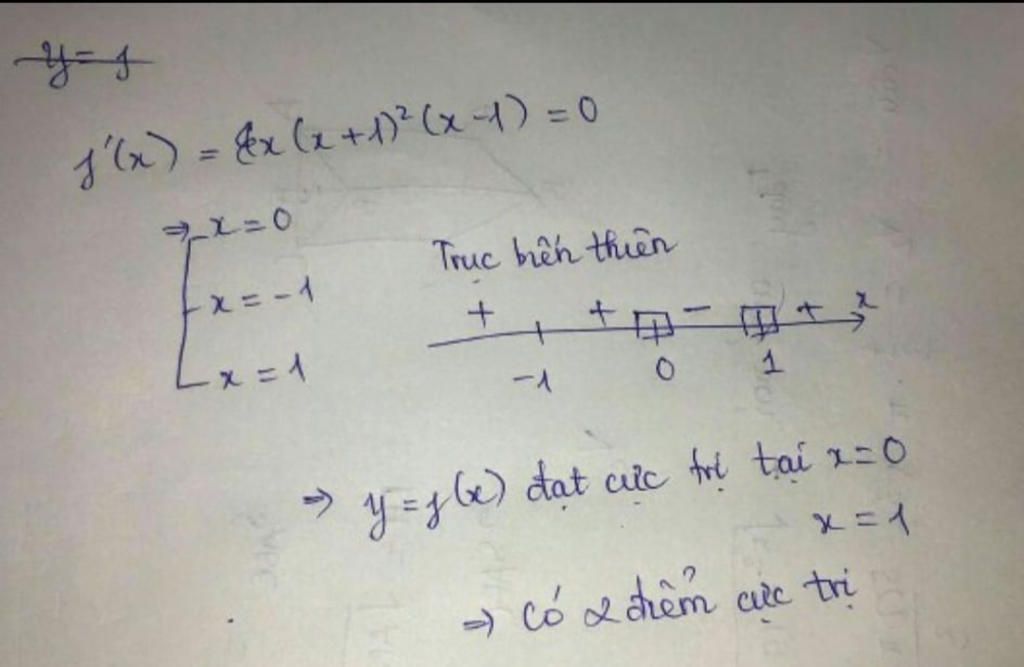 y = f
f'(x) = x(x+1)²(x-1) = 0
⇒ x = 0
x = -1
x = 1
Trục biến thiên
+ + - + x
-1 0 1
⇒ y = f(x) đạt cực trị tại x = 0
x = 1
⇒ Có 2 điểm cực trị